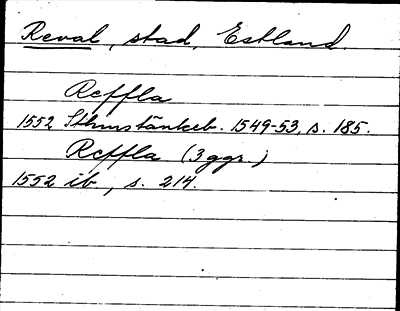 Reval, stad, Estland.
Reffla
1552 Sthms tänkeb. 1549-53, s. 185.
Reffla (3 ggr.)
1552 ib, s. 214.